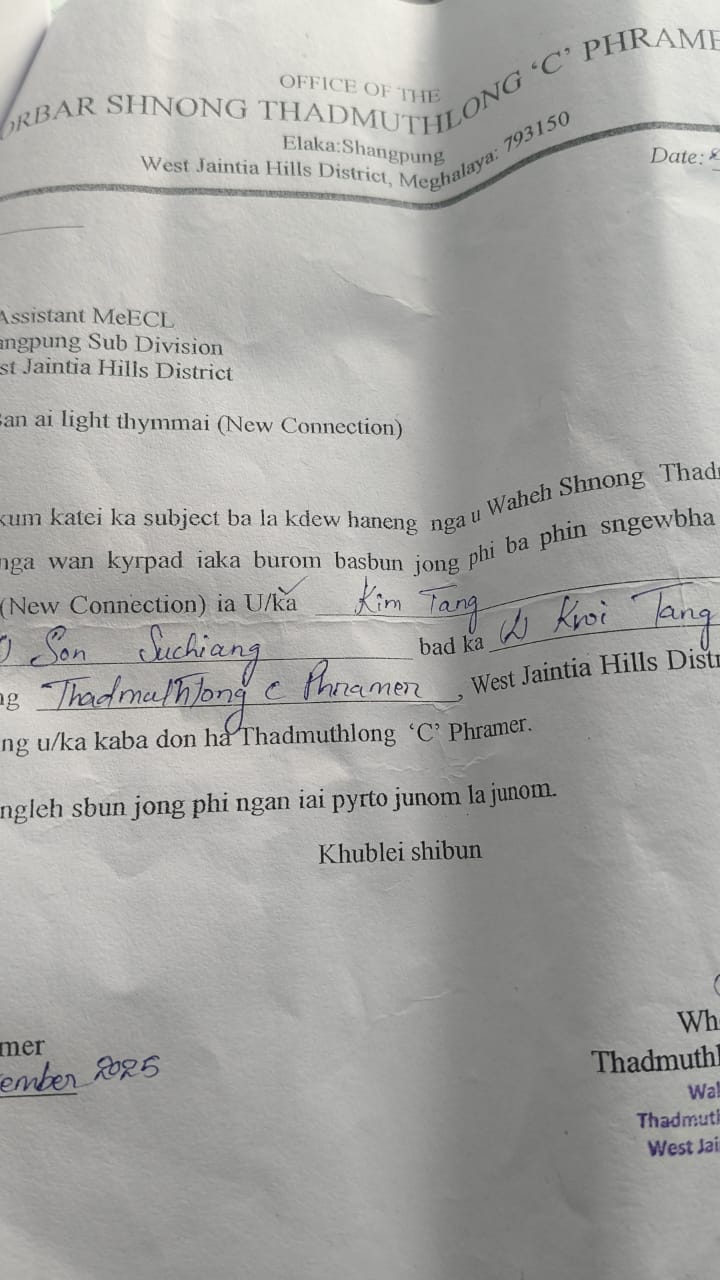 OFFICE OF THE
ORBAR SHNONG THADMUTHLONG ‘C’ PHRAME
Elaka:Shangpung
West Jaintia Hills District, Meghalaya: 793150
Date:
Assistant MeECL
angpung Sub Division
st Jaintia Hills District
an ai light thymmai (New Connection)
kum katei ka subject ba la kdew haneng nga u Waheh Shnong Thad
nga wan kyrpad iaka burom basbun jong phi ba phin sngewbha
(New Connection) ia U/ka Kim Tang
Son Suchiang bad ka (L) Kroi Tang
ng Thadmuthlong C Phramer, West Jaintia Hills Distr
ng u/ka kaba don ha Thadmuthlong ‘C’ Phramer.
ngleh sbun jong phi ngan iai pyrto junom la junom.
Khublei shibun
mer
ember 2025
Wh
Thadmuthl
Wa
Thadmut
West Jai